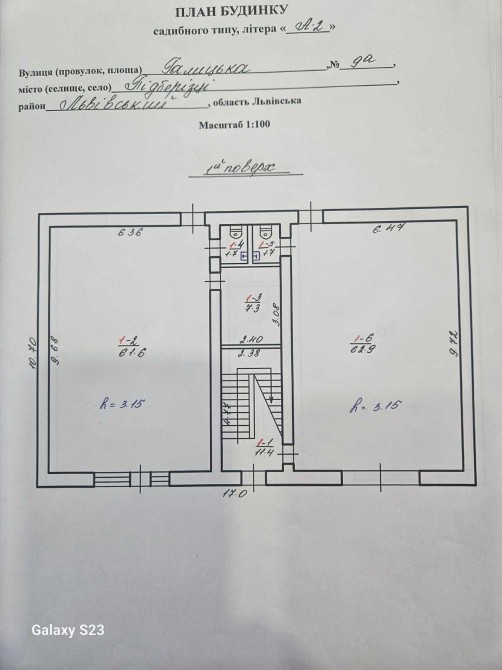 ПЛАН БУДИНКУ
садибного типу, літера «А-2»
Вулиця (провулок, площа) Галицька, № 9а,
місто (селище, село) Підберізці,
район Львівський, область Львівська
Масштаб 1:100
1ий поверх
6.36
6.47
1-4
1.7
1-5
1.7
1-3
7.3
3.08
10.70
9.68
1-2
61.6
2.40
2.38
1-6
62.9
9.72
h = 3.15
4.77
h = 3.15
1-1
11.4
17.0
Galaxy S23